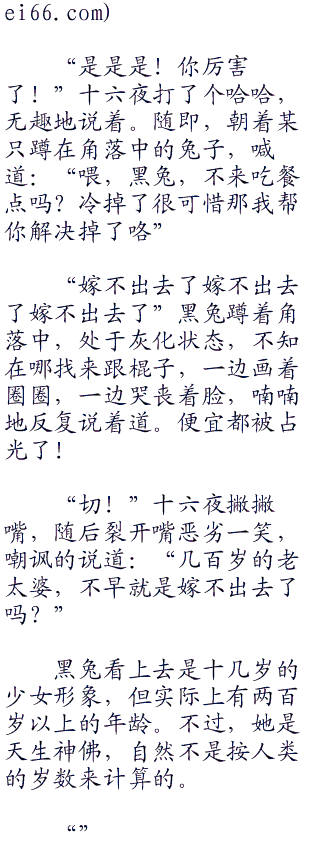 ei66.com)
“是是是！你厉害
了！”十六夜打了个哈哈，
无趣地说着。随即，朝着某
只蹲在角落中的兔子，喊
道：“喂，黑兔，不来吃餐
点吗？冷掉了很可惜那我帮
你解决掉了咯”
“嫁不出去了嫁不出去
了嫁不出去了”黑兔蹲着角
落中，处于灰化状态，不知
在哪找来跟棍子，一边画着
圈圈，一边哭丧着脸，喃喃
地反复说着道。便宜都被占
光了！
“切！”十六夜撇撇
嘴，随后裂开嘴恶劣一笑，
嘲讽的说道：“几百岁的老
太婆，不早就是嫁不出去了
吗？”
黑兔看上去是十几岁的
少女形象，但实际上有两百
岁以上的年龄。不过，她是
天生神佛，自然不是按人类
的岁数来计算的。
“”